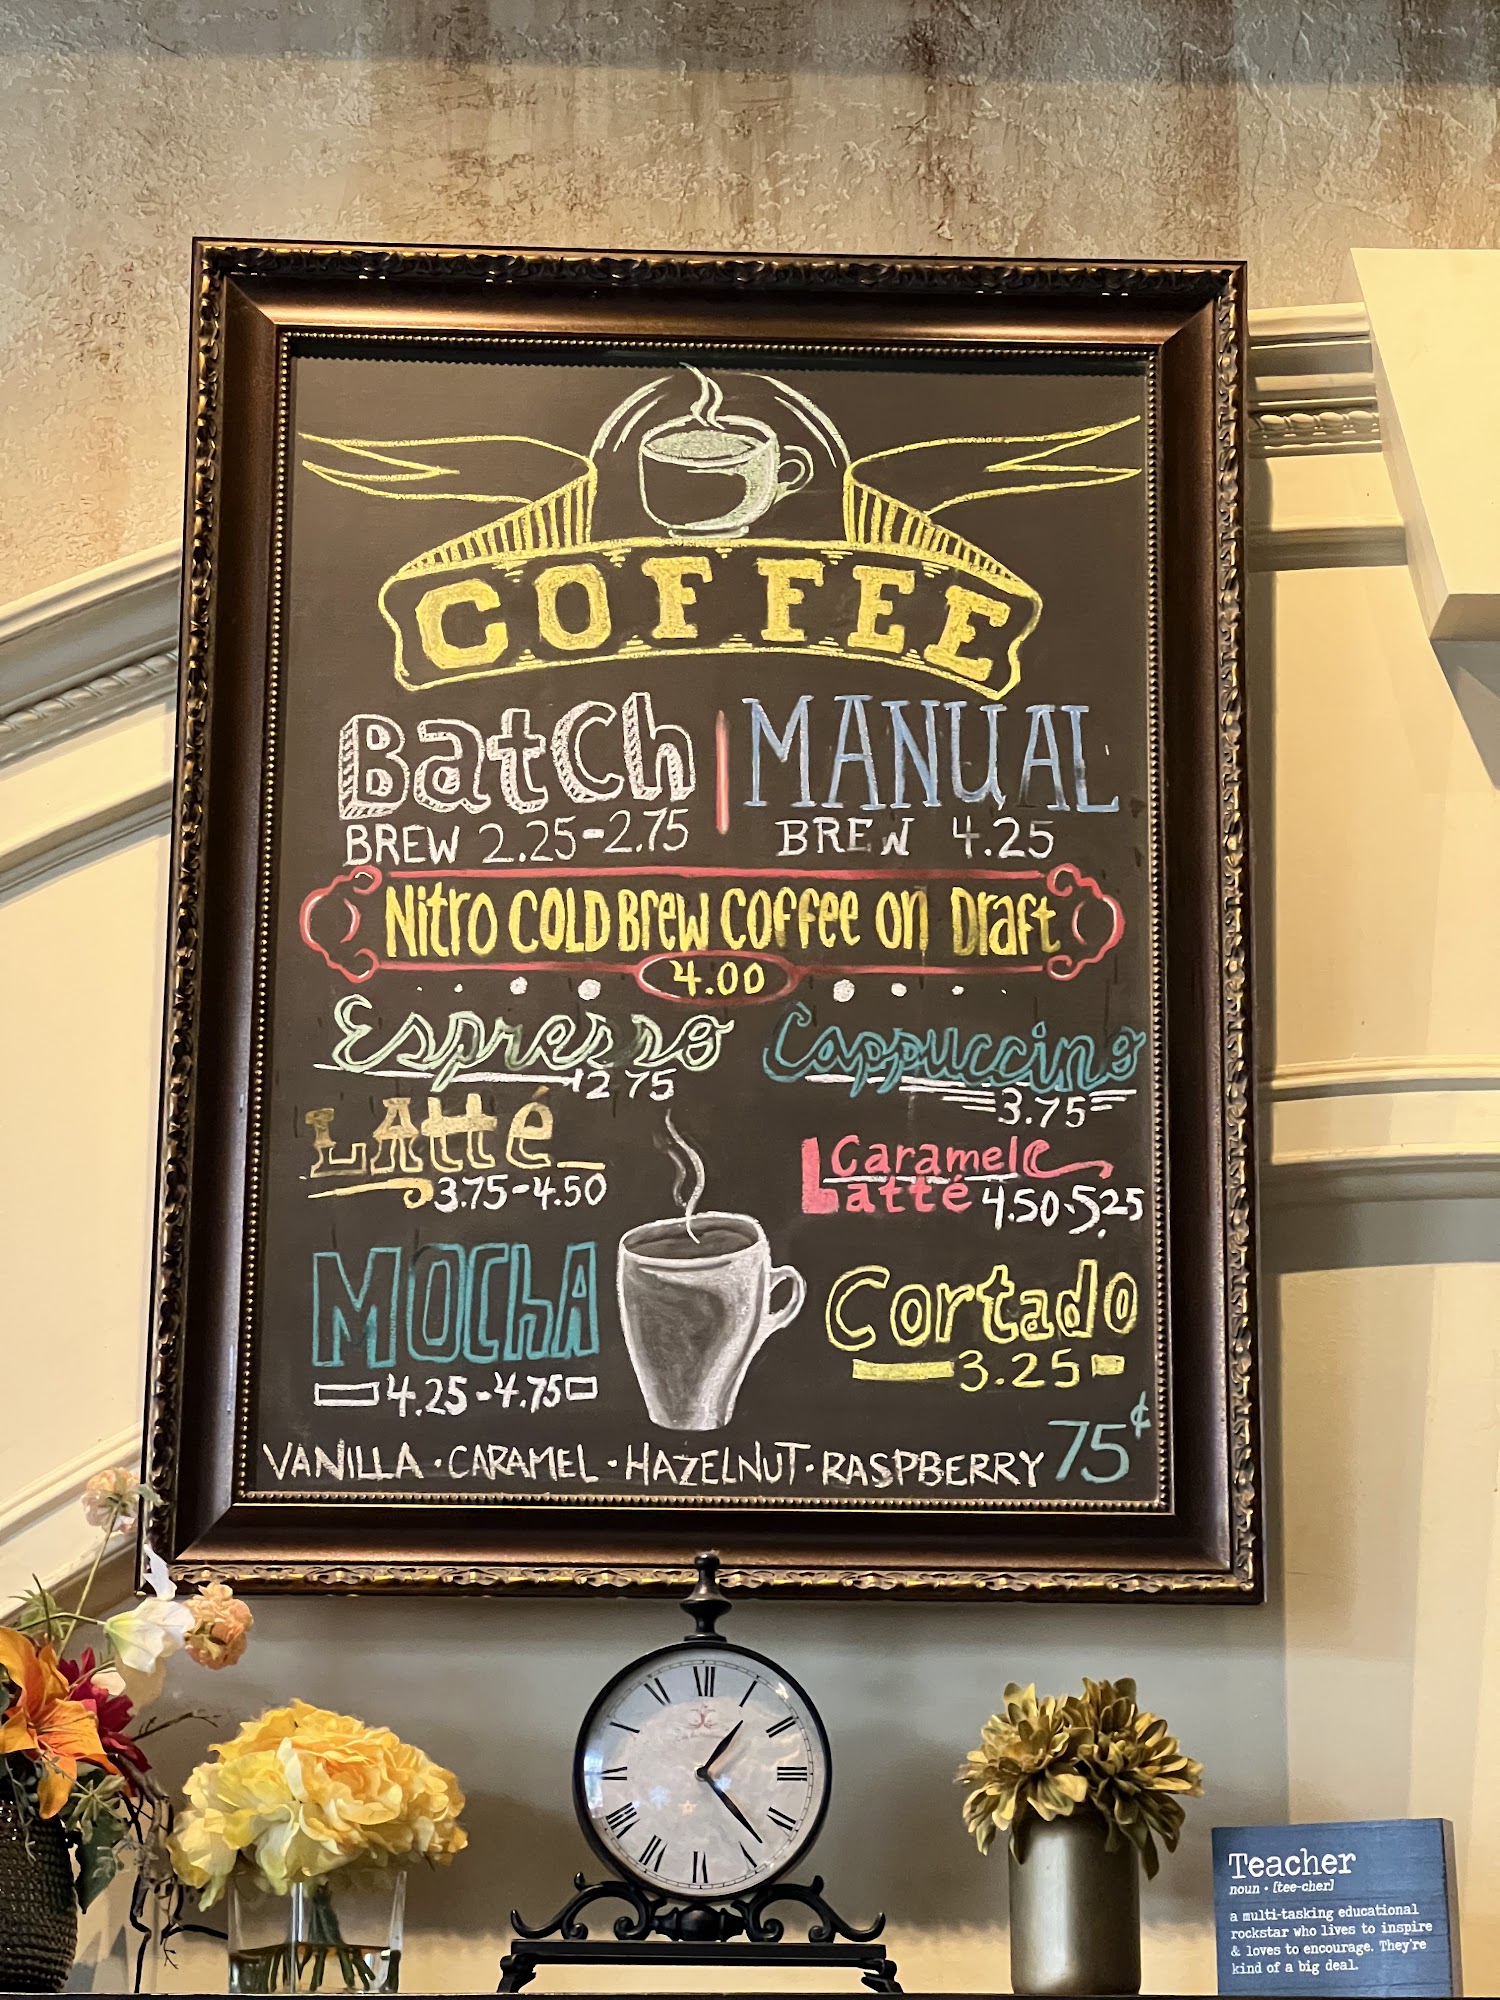 COFFEE
Batch | MANUAL
BREW 2.25-2.75 BREW 4.25
Nitro COLD Brew Coffee on Draft
4.00
Espresso Cappuccino
2 75 3.75
LAtté Caramel
3.75-4.50 Latté 4.50-5.25
MOCHA Cortado
4.25-4.75 3.25
VANILLA · CARAMEL · HAZELNUT · RASPBERRY 75¢
XII I II III IIII V VI VII VIII IX X XI
Teacher
noun • [tee-cher]
a multi-tasking educational
rockstar who lives to inspire
& loves to encourage. They're
kind of a big deal.